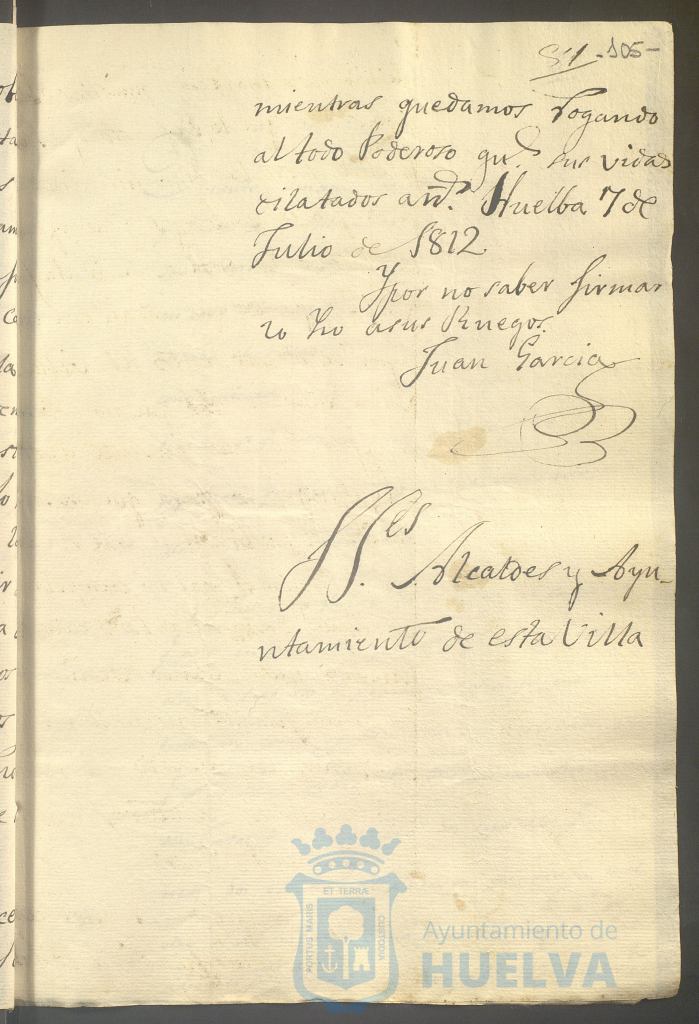 51 -105-
mientras quedamos Rogando
al todo Poderoso gu.e sus vidas
dilatados añ.s Huelba 7 de
Julio de 1812
Ypor no saber firmar
lo hso asus Ruegos.
Juan Garcia
SS.es Alcaldes y Ayu-
ntamiento de esta Villa
PORTUS MARIS
ET TERRÆ
CUSTODIA
Ayuntamiento de
HUELVA